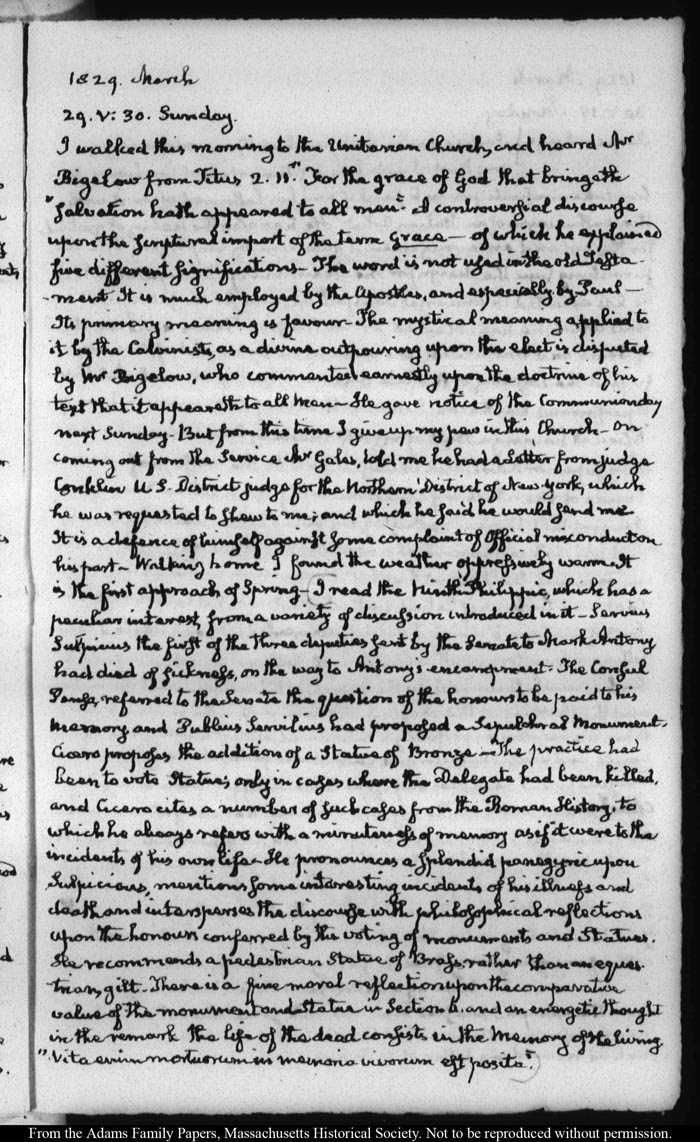 1829. March
29. V: 30. Sunday.
I walked this morning to the Unitarian Church, and heard Mr
Bigelow from Titus 2. 11. "For the grace of God that bringeth
"Salvation hath appeared to all men". A controversial discourse
upon the scriptural import of the term Grace — of which he explained
five different significations — The word is not used in the old Testa-
-ment It is much employed by the Apostles, and especially by Paul —
Its primary meaning is favour — The mystical meaning applied to
it by the Calvinists, as a divine outpouring upon the elect is disputed
by Mr Bigelow, who commented earnestly upon the doctrine of his
text that it appeareth to all men — He gave notice of the Communion day
next Sunday — But from this time I give up my pew in this Church — On
coming out from the Service Mr Gales, told me he had a Letter from judge
Conklin U. S. District judge for the Northern District of New-York, which
he was requested to shew to me; and which he said he would send me
It is a defence of himself against some complaint of Official misconduct on
his part — Walking home I found the weather oppressively warm. It
is the first approach of Spring — I read the Ninth Philippic, which has a
peculiar interest, from a variety of discussion introduced in it — Servius
Sulpicius the first of the three deputies sent by the Senate to Mark-Antony
had died of sickness, on the way to Antony's encampment. The Consul
Pansa, referred to the Senate the question of the honours to be paid to his
memory and Publius Servilius had proposed a Sepulchral Monument.
Cicero proposes the addition of a Statue of Bronze — The practice had
been to vote Statues only in cases where the Delegate had been killed,
and Cicero cites a number of such cases from the Roman History, to
which he always refers with a minuteness of memory as if it were to the
incidents of his own life — He pronounces a splendid panegyric upon
Sulpicius, mentions some interesting incidents of his illness and
death and intersperses the discourse with philosophical reflections
upon the honours conferred by the voting of monuments and Statues.
He recommends a pedestrian Statue of Brass, rather than an eques-
trian, gilt. There is a fine moral reflection upon the comparative
value of the monument and Statue in Section 6. and an energetic thought
in the remark the life of the dead consists in the Memory of the living
"Vita enim mortuorum in memoria vivorum est posita."
From the Adams Family Papers, Massachusetts Historical Society. Not to be reproduced without permission.